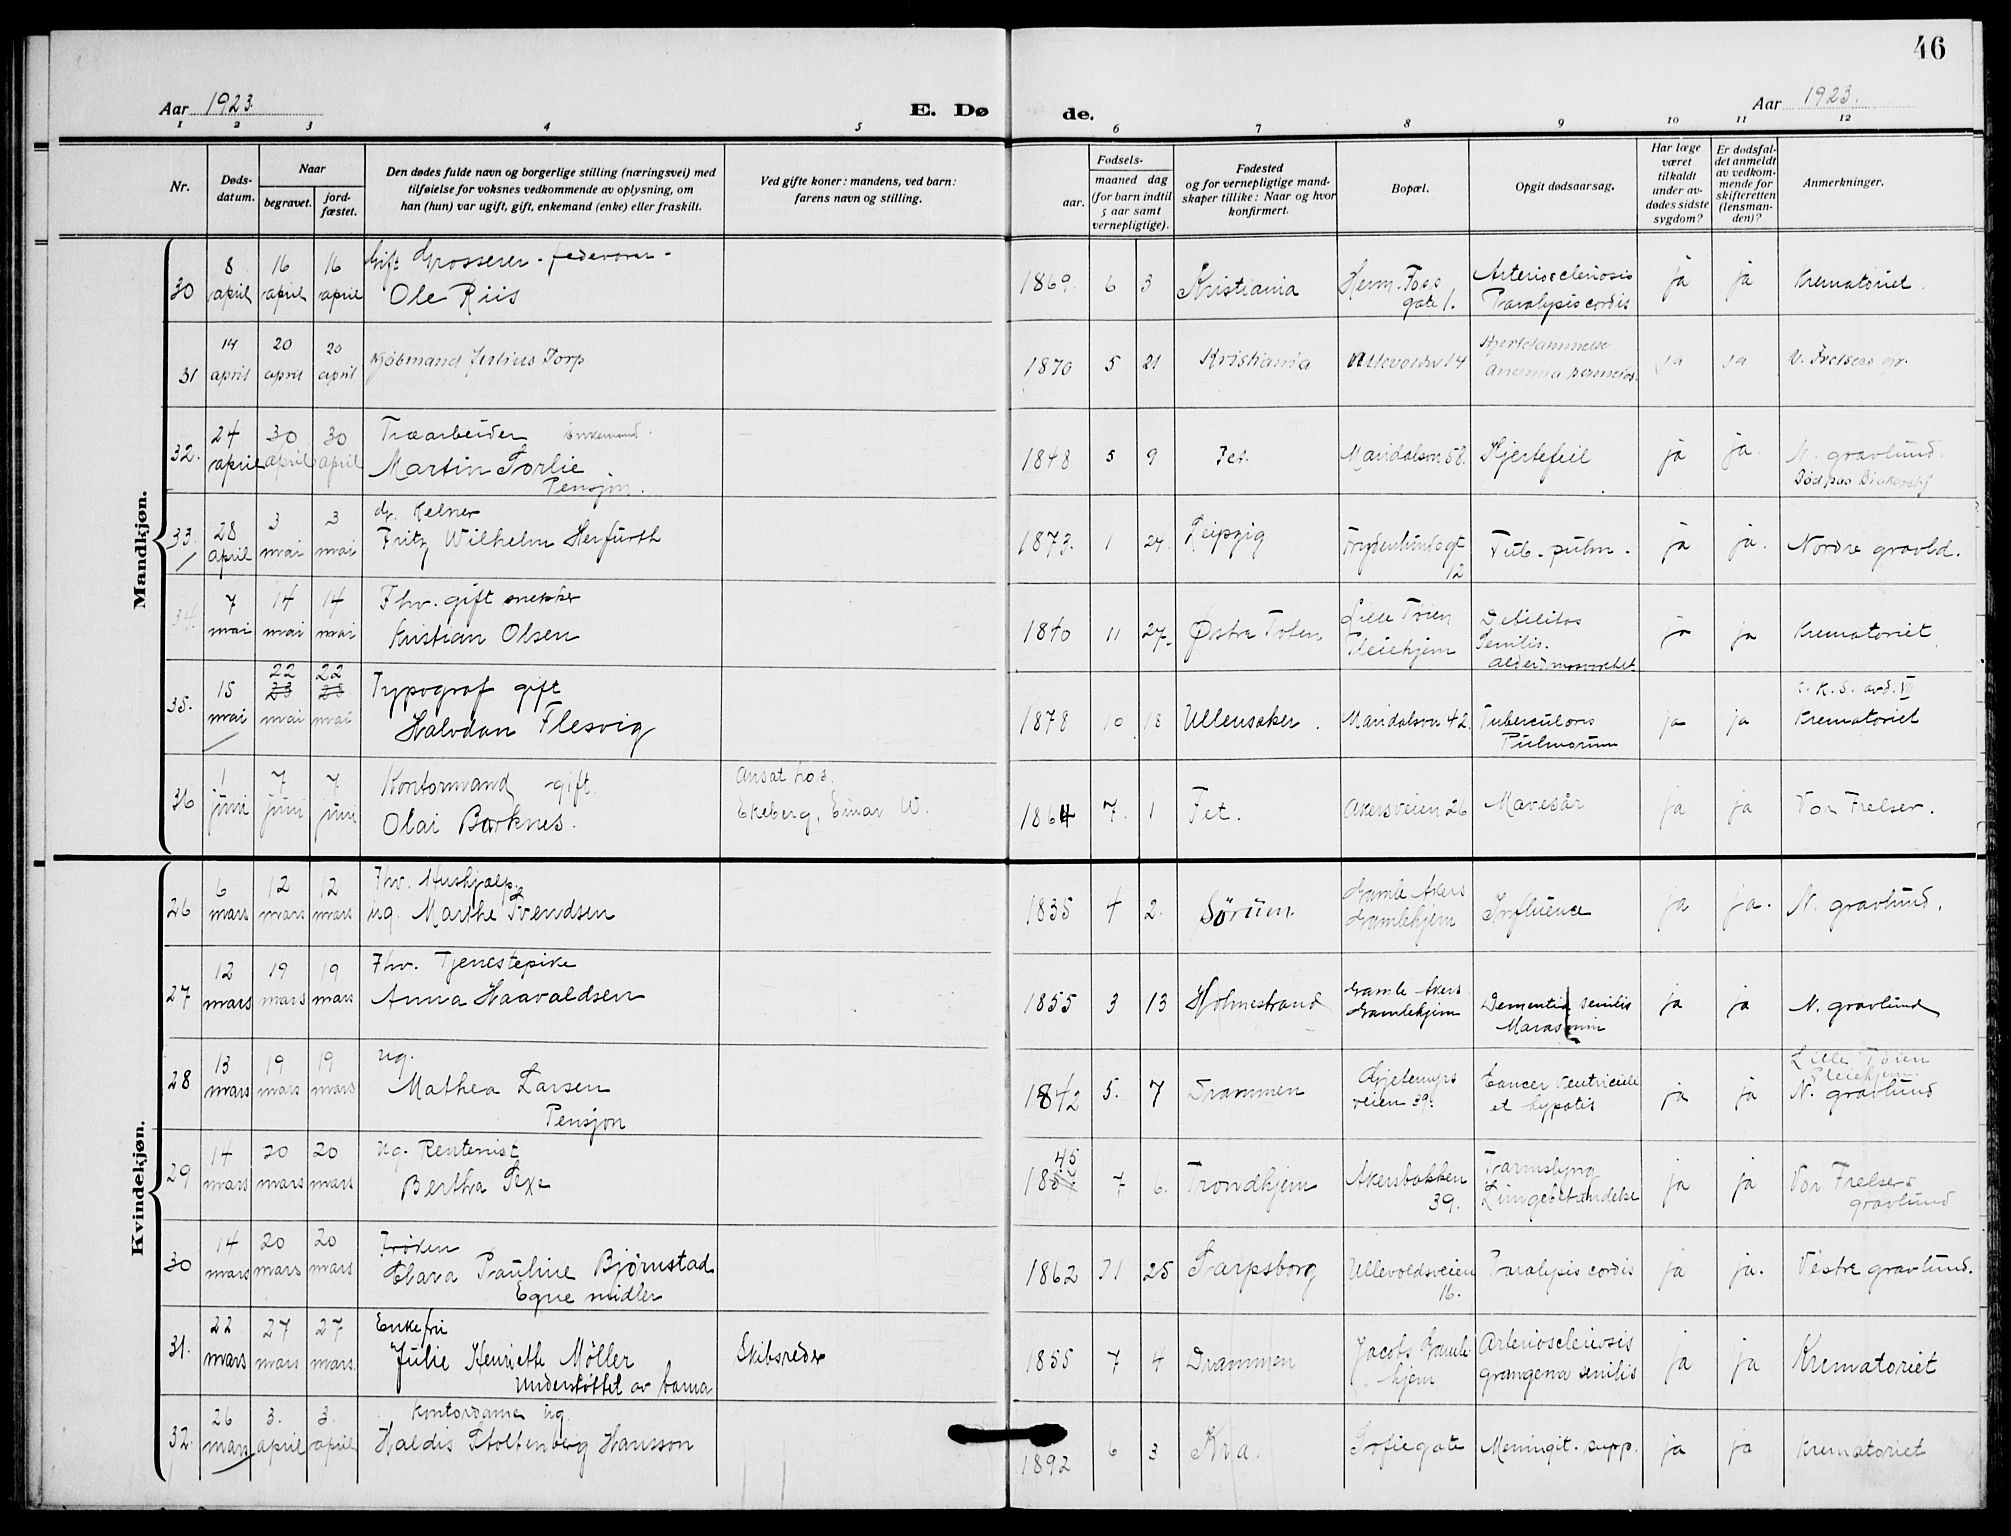 46
Aar 1923.
E. Dø
de.
Aar 1923.
1 2 3 4 5 6 7 8 9 10 11 12
Nr.
Døds-
datum.
Naar
begravet.
jord-
fæstet.
Den dødes fulde navn og borgerlige stilling (næringsvei) med
tilføielse for voksnes vedkommende av oplysning, om
han (hun) var ugift, gift, enkemand (enke) eller fraskilt.
Ved gifte koner: mandens, ved barn:
farens navn og stilling.
Fødsels-
aar.
maaned dag
(for barn indtil
5 aar samt
vernepligtige).
Fødested
og for vernepligtige mand-
skaper tillike: Naar og hvor
konfirmert.
Bopæl.
Opgit dødsaarsag.
Har læge
været
tilkaldt
under av-
dødes sidste
sygdom?
Er dødsfal-
det anmeldt
av vedkom-
mende for
skifteretten
(lensman-
den)?
Anmerkninger.
Mandkjøn.
30
8 april
16 april
16 april
Gift Grosserer - fedevarer -
Ole Riis
1869. 6 3
Kristiania
Herm. Foss
gate 1.
Arteriosclerosis
Paralysis cordis
ja
ja
Krematoriet.
31
14 april
20 april
20 april
Kjøbmand Julius Torp
1870 5 21
Kristiania
Ullevoldsv 14
Hjertelammelse
ja
ja
V. Frelsers gr.
32.
24 april
30 april
30 april
Træarbeider Enkemand.
Martin Sorlie
Pensjon.
1848 5 9
Fet.
Maridalsvn 58.
Hjertefeil
ja
ja.
N. gravlund.
33.
28 april
3 mai
3 mai
Kelner
Fritz Wilhelm Herfurth
1873. 1 24.
Leipzig
Frydenlundsgt
12
Tub. pulm.
ja
ja.
Nordre gravld.
34.
7 mai
14 mai
14 mai
Fhv. gift snekker
Kristian Olsen
1840 11 27.
Østre Toten
Lille Tøien
Pleiehjem
Debilitas
Senilis.
ja
ja
Krematoriet.
35.
15 mai
22 23 mai
22 23 mai
Typograf gift
Halvdan Flesvig
1878 10 18
Ullensaker.
Maridalsvn 42.
Tuberculosis
Pulmonum
ja
ja
K. K. S. avd. VII
Krematoriet
36
1 juni
7 juni
7 juni
Kontormand gift.
Olai Barknes.
Ansat hos.
Ekeberg, Einar W.
1864 7. 1
Fet.
Akersveien 26
Mavesår
ja
ja
Vor Frelser.
Kvindekjøn.
26
6 mars
12 mars
12 mars
Fhv. Hushjælp.
ug. Marthe Svendsen
1835 4 2.
Sørum
Gamle Akers
Gamlehjem
Influence
ja
ja.
N. gravlund.
27
12 mars
19 mars
19 mars
Fhv. Tjenestepike
Anna Haavaldsen
1855 3 13
Holmestrand
Gamle Akers
Gamlehjem
Dementia senilis
ja
ja
N. gravlund
28
13 mars
19 mars
19 mars
ug.
Mathea Larsen
Pensjon
1842 5. 7
Drammen
Gjetemyrs
veien 39.
Cancer Ventriculi
et hypatis
ja
ja
Lille Tøien
Pleiehjem.
N. gravlund
29
14 mars
20 mars
20 mars
ug. Rentenist
Bertha Sexe
45
18 7 6.
Trondhjem
Akersbakken
39.
Tarmslyng
Lungebetændelse
ja
ja
Vor Frelsers
gravlund
30
14 mars
20 mars
20 mars
Frøken
Clara Pauline Bjørnstad
Egne midler
1862 11 25
Sarpsborg
Ullevoldsveien
16.
Paralysis cordis
ja
ja.
Vestre gravlund.
31.
22 mars
27 mars
27 mars.
Enkefru
Julie Henriette Møller
Understøttet av barna
Skibsreder
1855 7 4
Drammen
Jacobs Gamle
hjem
Arteriosclerosis
grangena senilis
ja
ja
Krematoriet
32.
26 mars
3. april
3. april
Kontordame ug.
Haldis Stoltenberg Hansson
1892 6 3
Kra.
Sofiegate
Meningit. supp.
ja
ja
Krematoriet